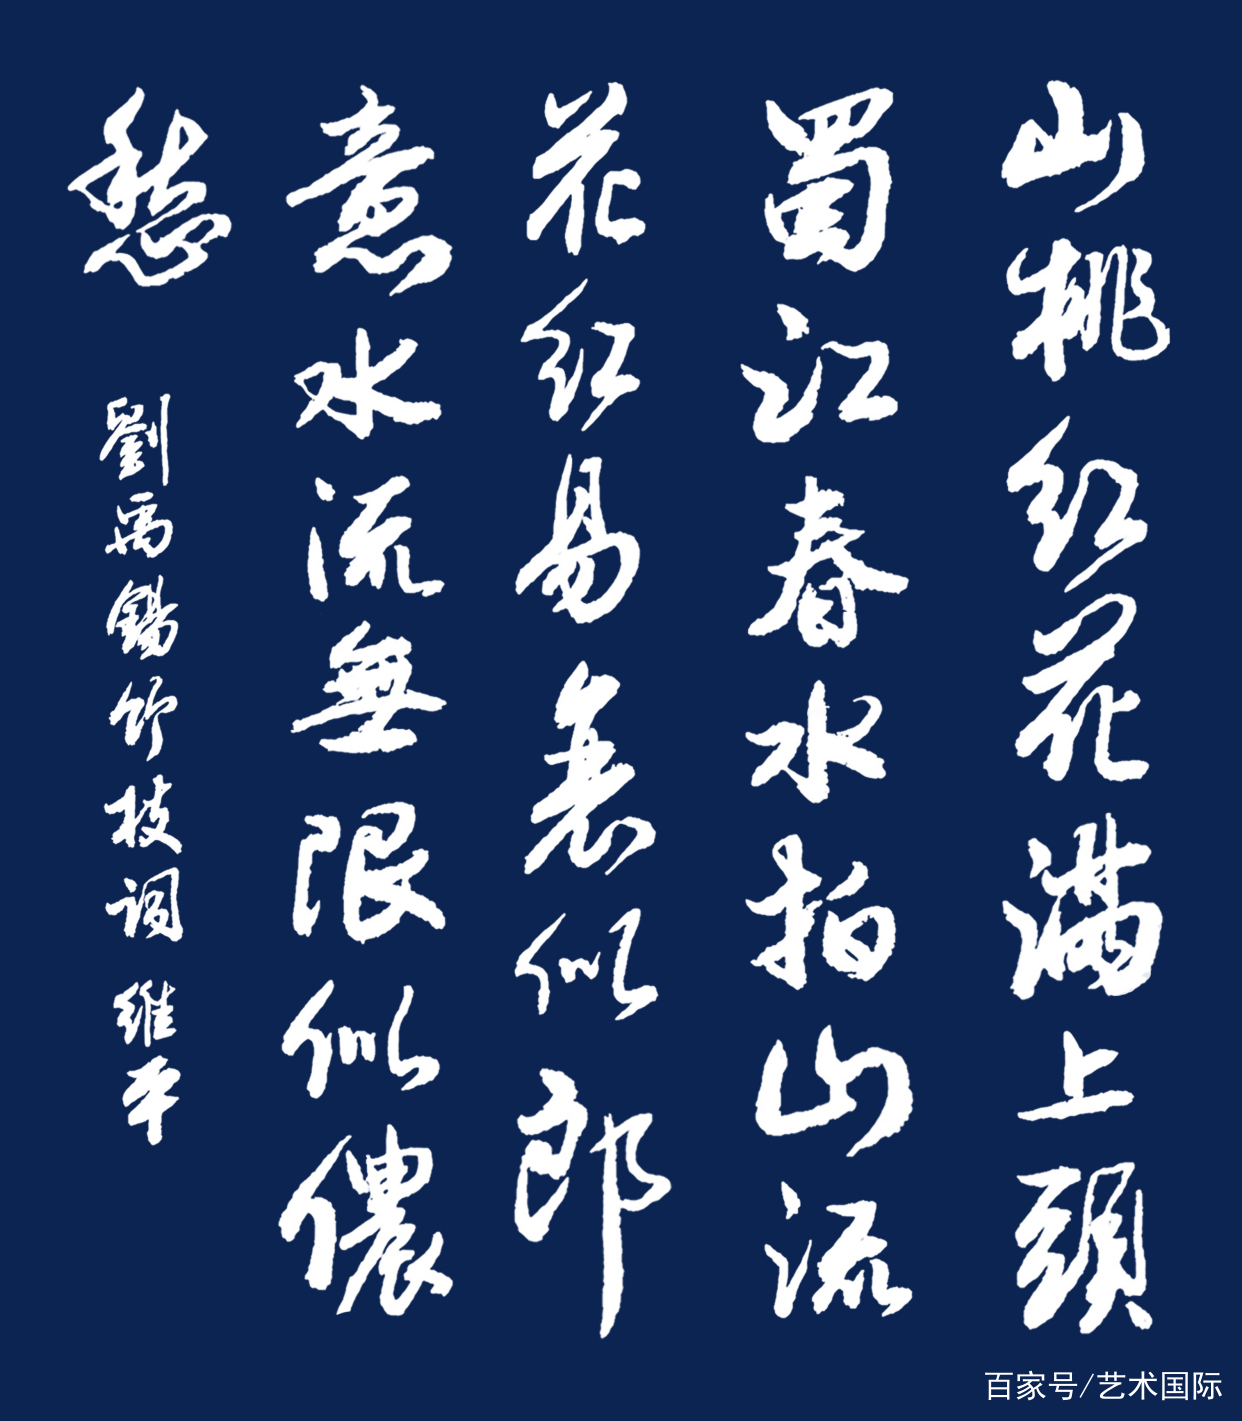 山桃红花满上頭
蜀江春水拍山流
花红易衰似郎
意水流無限似儂
愁
劉禹錫竹枝词 维平
百家号/艺术国际